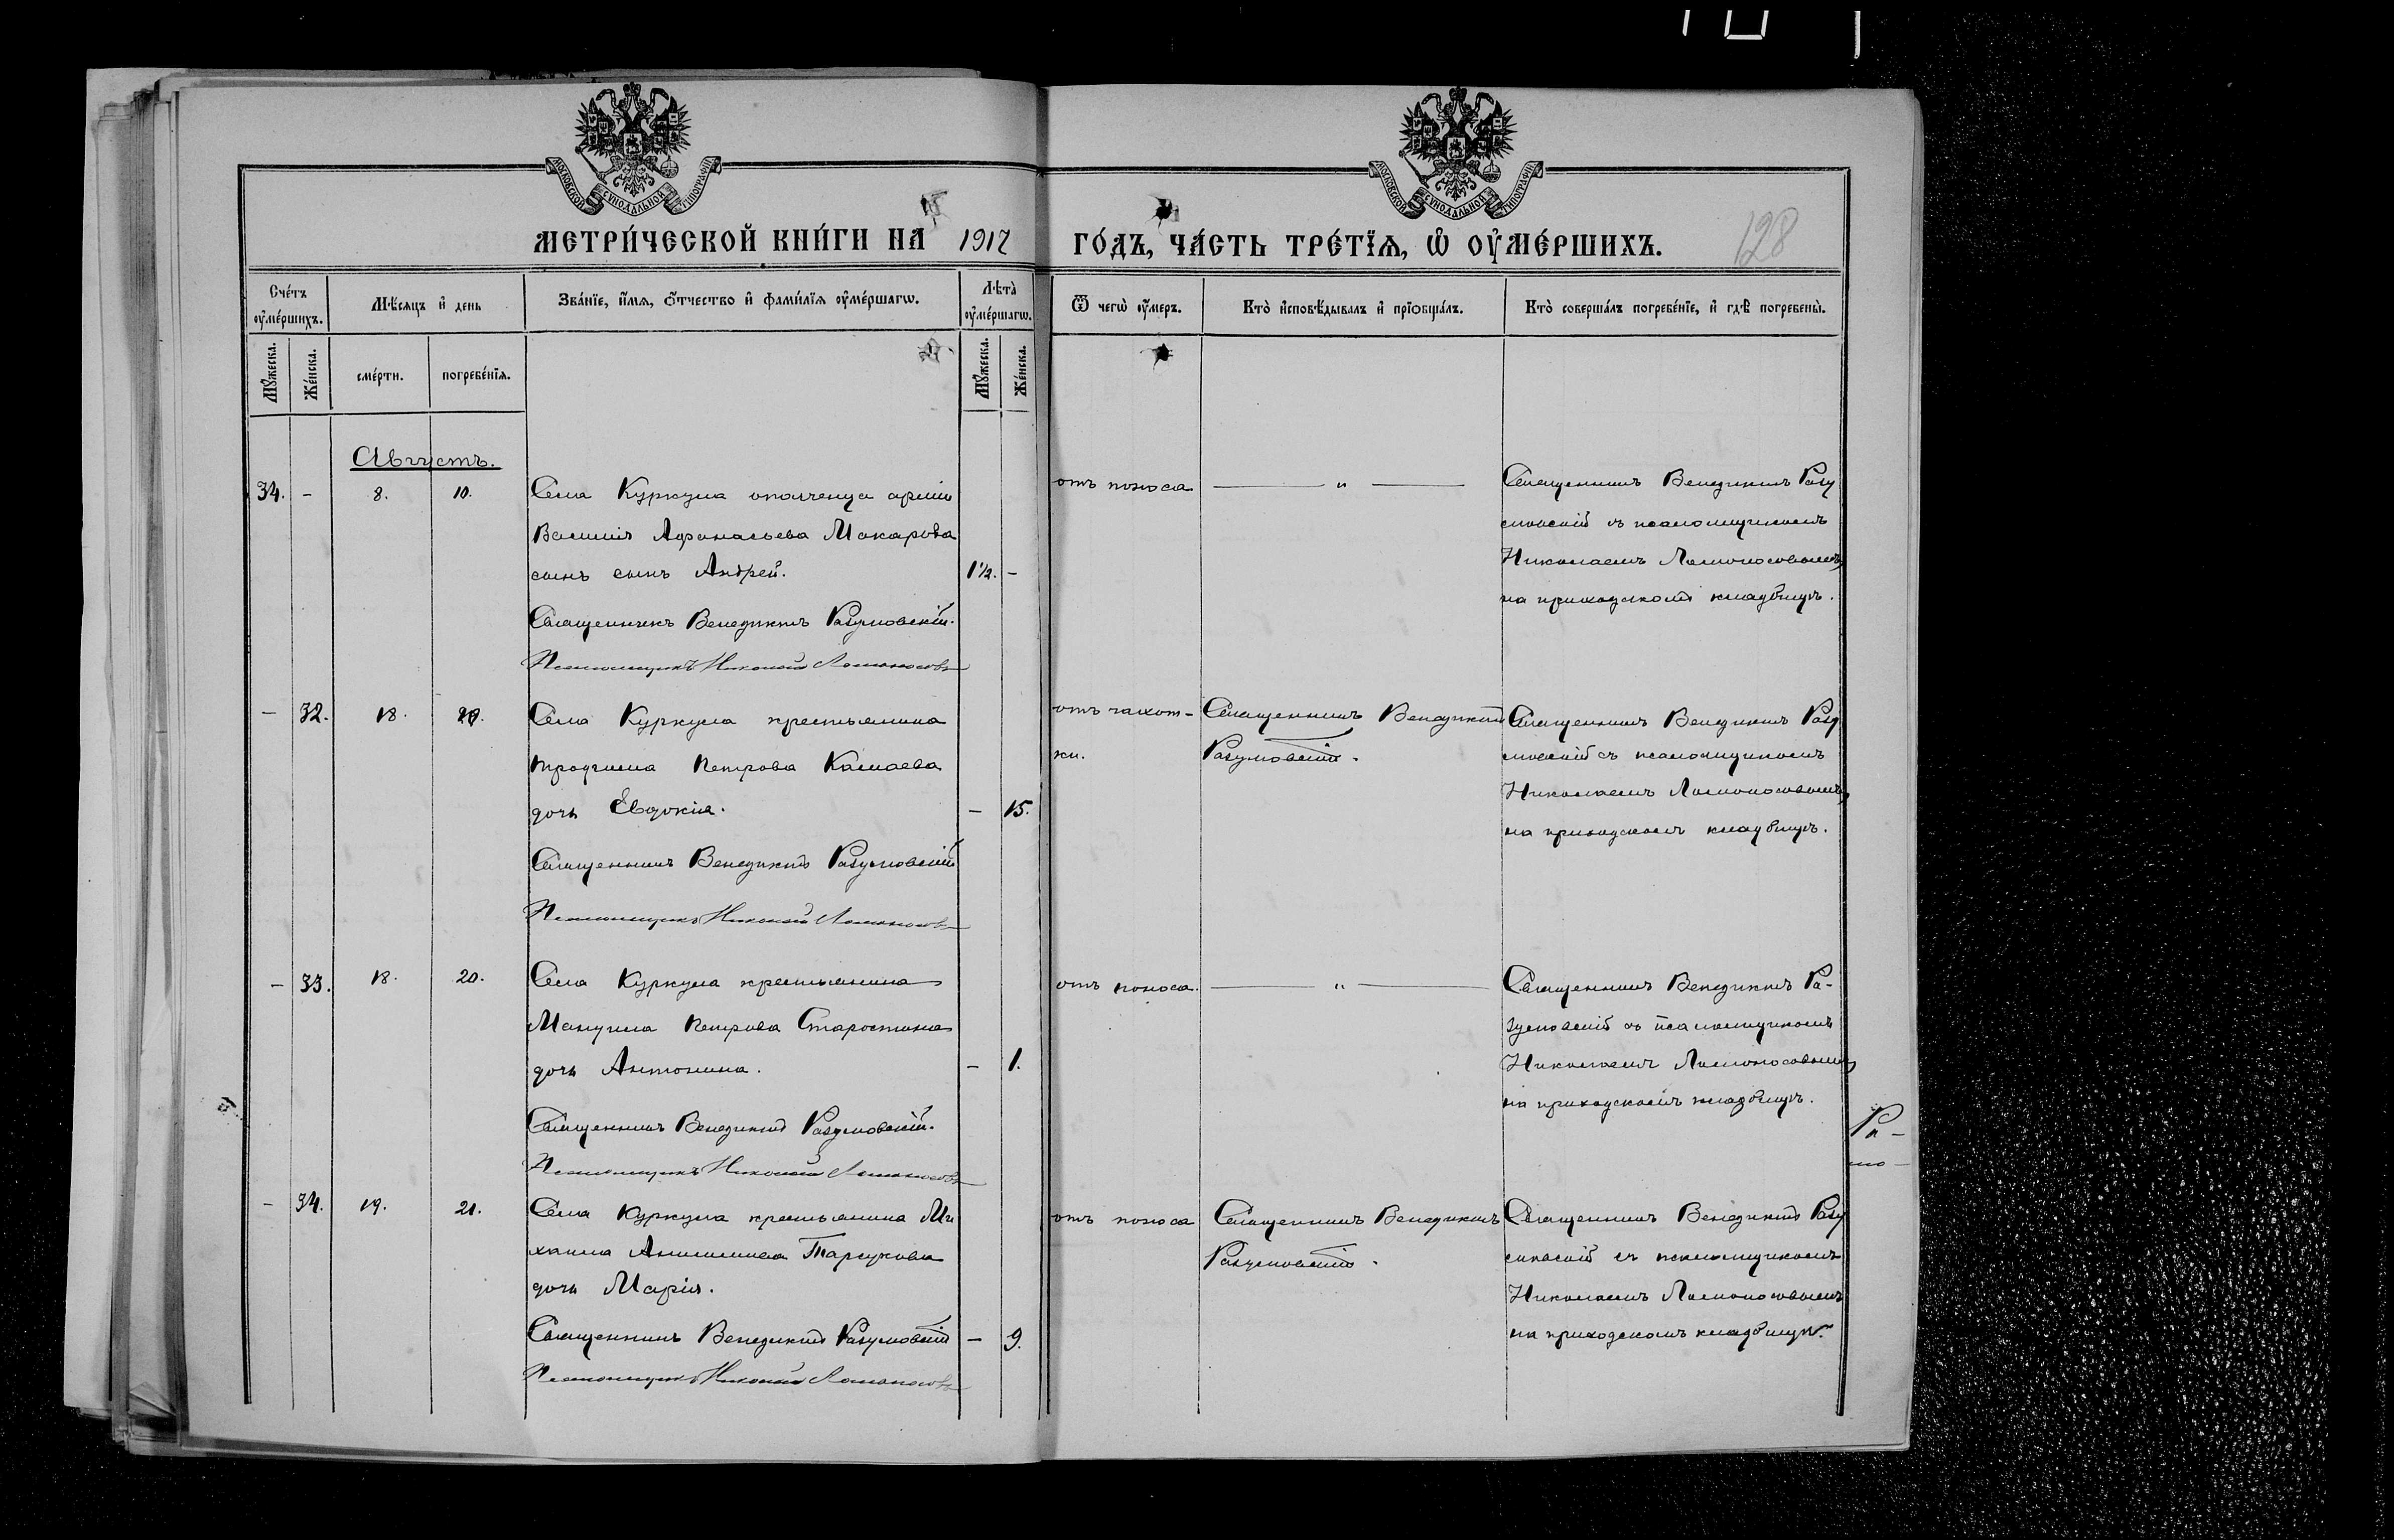 МОСКОВСКОЙ СУНОДАЛЬНОЙ ТИПОГРАФІИ
МОСКОВСКОЙ СУНОДАЛЬНОЙ ТИПОГРАФІИ
МЕТРИ́ЧЕСКОЙ КНИ́ГИ НА 1917
ГО́ДЪ, ЧА́СТЬ ТРЕ́ТІѦ, Ѡ҆ ОУ҆МЕ́РШИХЪ.
128
Сче́тъ оу҆ме́ршихъ.
Мѣ́сяцъ и҆ день
Зва́нїе, и҆́мѧ, ѻ҆́тчество и҆ фами́лїѧ оу҆ме́ршагѡ.
Лѣ́та̀ оу҆ме́ршагѡ.
Ѿ чегѡ̀ оу҆́меръ.
Кто̀ и҆сповѣ́дывалъ и҆ прїѡбща́лъ.
Кто̀ соверша́лъ погребе́нїе, и҆ гдѣ̀ погребены̀.
Му́жеска.
Же́нска.
сме́рти.
погребе́нїѧ.
Му́жеска.
Же́нска.
Августъ.
34. - 8. 10.
Села Куркула ополченца арміи
Василія Афанасьева Макарова
сынъ сынъ Андрей.
1½. -
Священникъ Венедиктъ Разумовскій.
Псаломщикъ Николай Ломоносовъ
отъ поноса
— " —
Священникъ Венедиктъ Разу
мовскій съ псаломщикомъ
Николаемъ Ломоносовымъ,
на приходскомъ кладбищѣ.
- 32. 18. 20.
Села Куркула крестьянина
Трофима Петрова
дочь Евдокія.
- 15.
Священникъ Венедиктъ Разумовскій
Псаломщикъ Николай Ломоносовъ
отъ чахот-
ки.
Священникъ Венедиктъ
Разумовскій.
Священникъ Венедиктъ Разу
мовскій съ псаломщикомъ
Николаемъ Ломоносовымъ,
на приходскомъ кладбищѣ.
- 33. 18. 20.
Села Куркула крестьянина
Мануила Петрова Старостина
дочь Антонина.
- 1.
Священникъ Венедиктъ Разумовскій.
Псаломщикъ Николай Ломоносовъ
отъ поноса.
— " —
Священникъ Венедиктъ Ра-
зумовскій съ псаломщикомъ
Николаемъ Ломоносовымъ,
на приходскомъ кладбищѣ.
- 34. 19. 21.
Села Куркула крестьянина Ми
хаила Анисимова
дочь Марія.
Священникъ Венедиктъ Разумовскій
- 9.
Псаломщикъ Николай Ломоносовъ
отъ поноса
Священникъ Венедиктъ
Разумовскій.
Священникъ Венедиктъ Разу
мовскій съ псаломщикомъ
Николаемъ Ломоносовымъ
на приходскомъ кладбищѣ.
Ра-
мо-